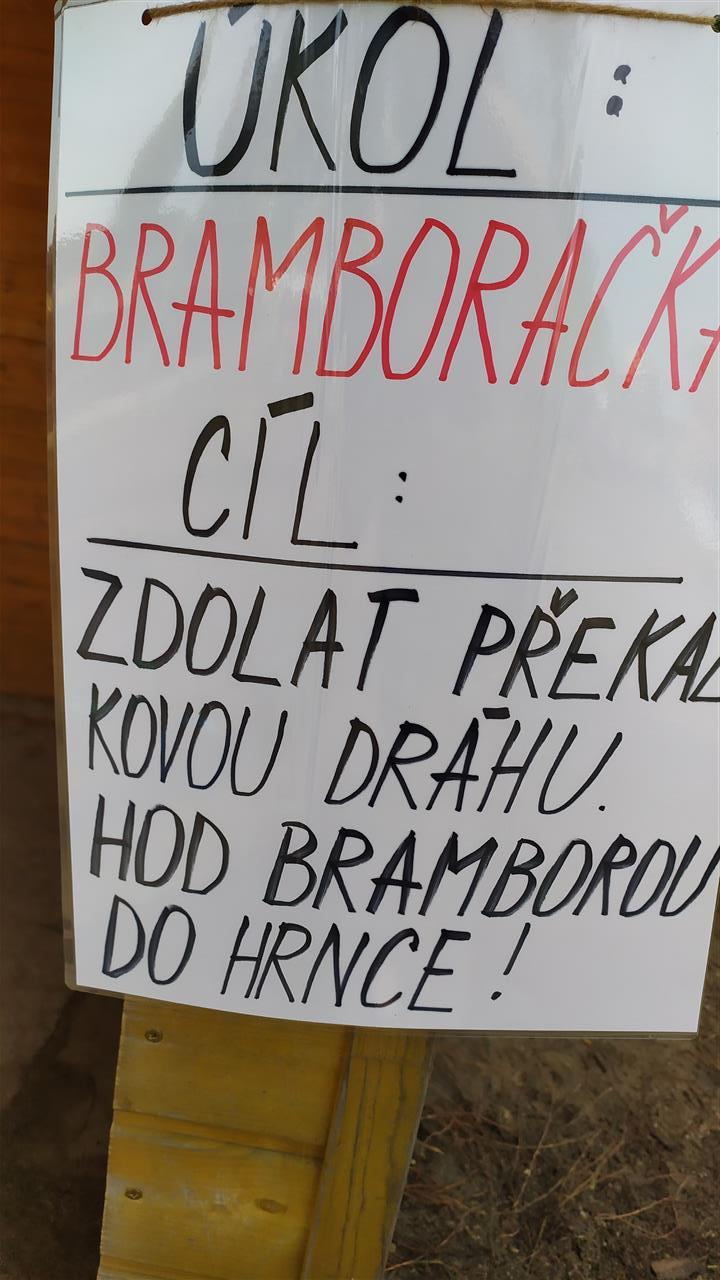 ÚKOL :
BRAMBORAČKA
CÍL :
ZDOLAT PŘEKÁŽ
KOVOU DRÁHU.
HOD BRAMBOROU
DO HRNCE !